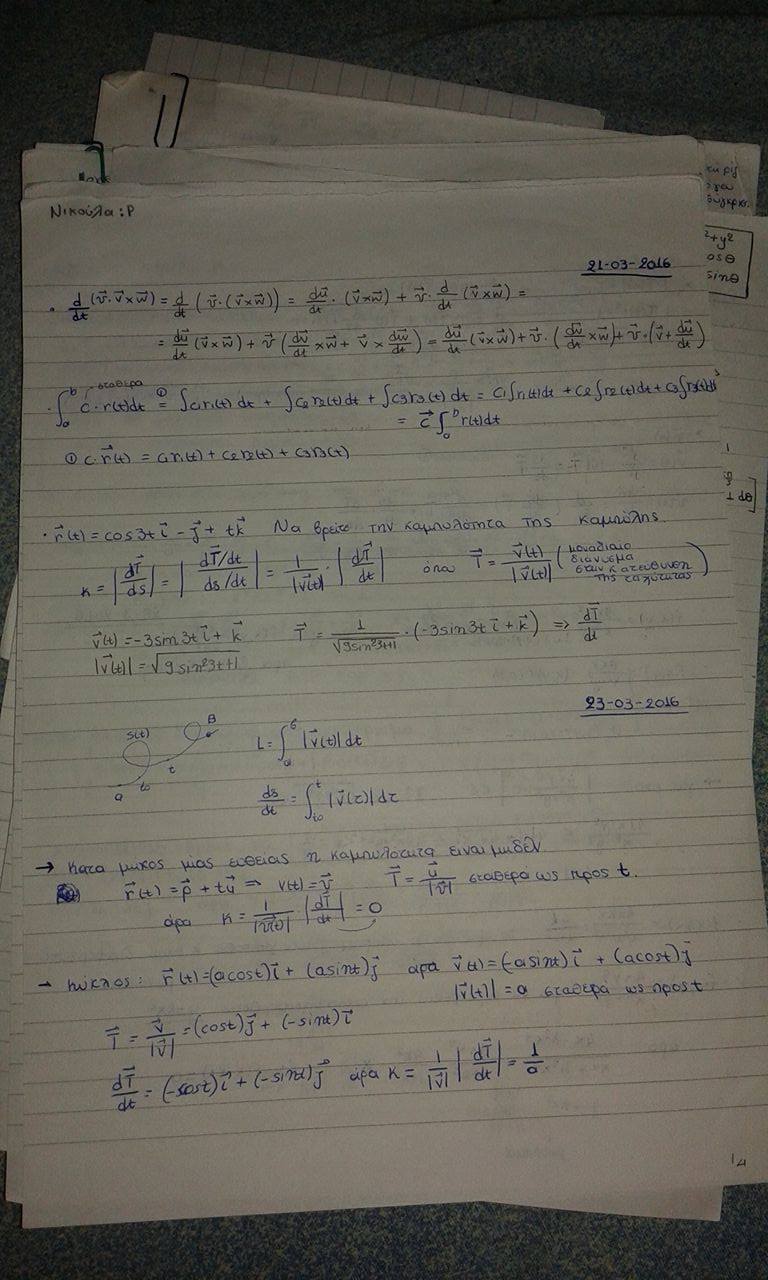 Νικούλα:Ρ
21-03-2016
· d/dt (v⃗·v⃗×w⃗) = d/dt (v⃗·(v⃗×w⃗)) = du⃗/dt · (v⃗×w⃗) + v⃗· d/dt (v⃗×w⃗) =
= du⃗/dt (v⃗×w⃗) + v⃗ (dv⃗/dt ×w⃗ + v⃗ × dw⃗/dt) = du⃗/dt (v⃗×w⃗) + v⃗· (dv⃗/dt ×w⃗) + v⃗·(v⃗+ dw⃗/dt)
σταθερα
· ∫ₐᵇ c·r(t)dt ①= ∫c1r1(t) dt + ∫c2r2(t)dt + ∫c3r3(t) dt = c1∫r1(t)dt + c2∫r2(t)dt + c3∫r3(t)dt
= c⃗ ∫ₐᵇ r(t)dt
① c·r⃗(t) = c1r1(t) + c2r2(t) + c3r3(t)
· r⃗(t) = cos3t i⃗ - j⃗ + tk⃗ Να βρείτε την καμπυλότητα της καμπύλης.
κ = |dT⃗/ds| = |dT⃗/dt / ds/dt| = 1/|v⃗(t)| · |dT⃗/dt| όπου T⃗ = v⃗(t)/|v⃗(t)| (μοναδιαιο
διάνυσμα
στην κατεύθυνση
της ταχύτητας)
v⃗(t) = -3sin3t i⃗ + k⃗ T⃗ = 1/√9sin²3t+1 · (-3sin3t i⃗ + k⃗) ⇒ dT⃗/dt
|v⃗(t)| = √9sin²3t+1
23-03-2016
s(t) B
a to t
L = ∫ₐᵇ |v⃗(t)| dt
ds/dt = ∫ₜₒᵗ |v⃗(τ)| dτ
→ Κατα μηκος μίας ευθειας η καμπυλοτητα ειναι μηδεν
r⃗(t) = p⃗ + tu⃗ ⇒ v(t) = v⃗ T⃗ = u⃗/|v⃗| σταθερα ως προς t.
άρα κ = 1/|v⃗(t)| |dT⃗/dt| = 0
→ κύκλος: r⃗(t) = (acost)i⃗ + (asint)j⃗ άρα v⃗(t) = (-asint)i⃗ + (acost)j⃗
|v⃗(t)| = a σταθερά ως προς t
T⃗ = v⃗/|v⃗| = (cost)j⃗ + (-sint)i⃗
dT⃗/dt = (-cost)i⃗ + (-sint)j⃗ άρα κ = 1/|v⃗| |dT⃗/dt| = 1/a
14